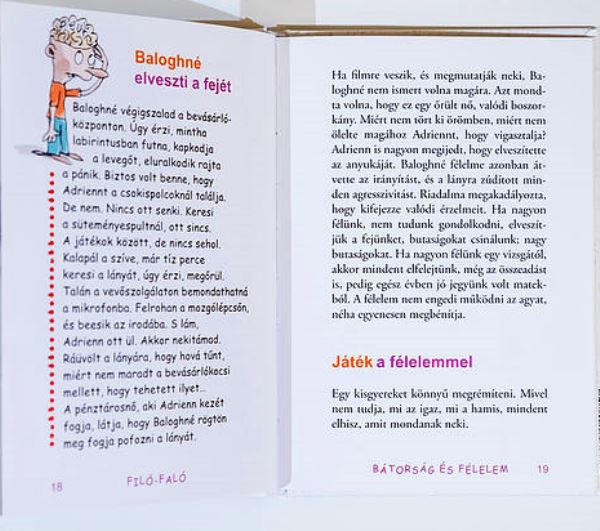 Baloghné
elveszti a fejét
Baloghné végigszalad a bevásárló-
központon. Úgy érzi, mintha
labirintusban futna, kapkodja
a levegőt, eluralkodik rajta
a pánik. Biztos volt benne, hogy
Adriennt a csokispolcoknál találja.
De nem. Nincs ott senki. Keresi
a süteményespultnál, ott sincs.
A játékok között, de nincs sehol.
Kalapál a szíve, már tíz perce
keresi a lányát, úgy érzi, megőrül.
Talán a vevőszolgálaton bemondathatná
a mikrofonba. Felrohan a mozgólépcsőn,
és beesik az irodába. S lám,
Adrienn ott ül. Akkor nekitámad.
Ráüvölt a lányára, hogy hová tűnt,
miért nem maradt a bevásárlókocsi
mellett, hogy tehetett ilyet...
A pénztárosnő, aki Adrienn kezét
fogja, látja, hogy Baloghné rögtön
meg fogja pofozni a lányát.
18
FILÓ-FALÓ
Ha filmre veszik, és megmutatják neki, Ba-
loghné nem ismert volna magára. Azt mond-
ta volna, hogy ez egy őrült nő, valódi boszor-
kány. Miért nem tört ki örömben, miért nem
ölelte magához Adriennt, hogy vigasztalja?
Adrienn is nagyon megijedt, hogy elveszítette
az anyukáját. Baloghné félelme azonban át-
vette az irányítást, és a lányra zúdított min-
den agresszivitást. Riadalma megakadályozta,
hogy kifejezze valódi érzelmeit. Ha nagyon
félünk, nem tudunk gondolkodni, elveszít-
jük a fejünket, butaságokat csinálunk; nagy
butaságokat. Ha nagyon félünk egy vizsgától,
akkor mindent elfelejtünk, még az összeadást
is, pedig egész évben jó jegyünk volt matek-
ból. A félelem nem engedi működni az agyat,
néha egyenesen megbénítja.
Játék a félelemmel
Egy kisgyereket könnyű megrémíteni. Mivel
nem tudja, mi az igaz, mi a hamis, mindent
elhisz, amit mondanak neki.
BÁTORSÁG ÉS FÉLELEM
19